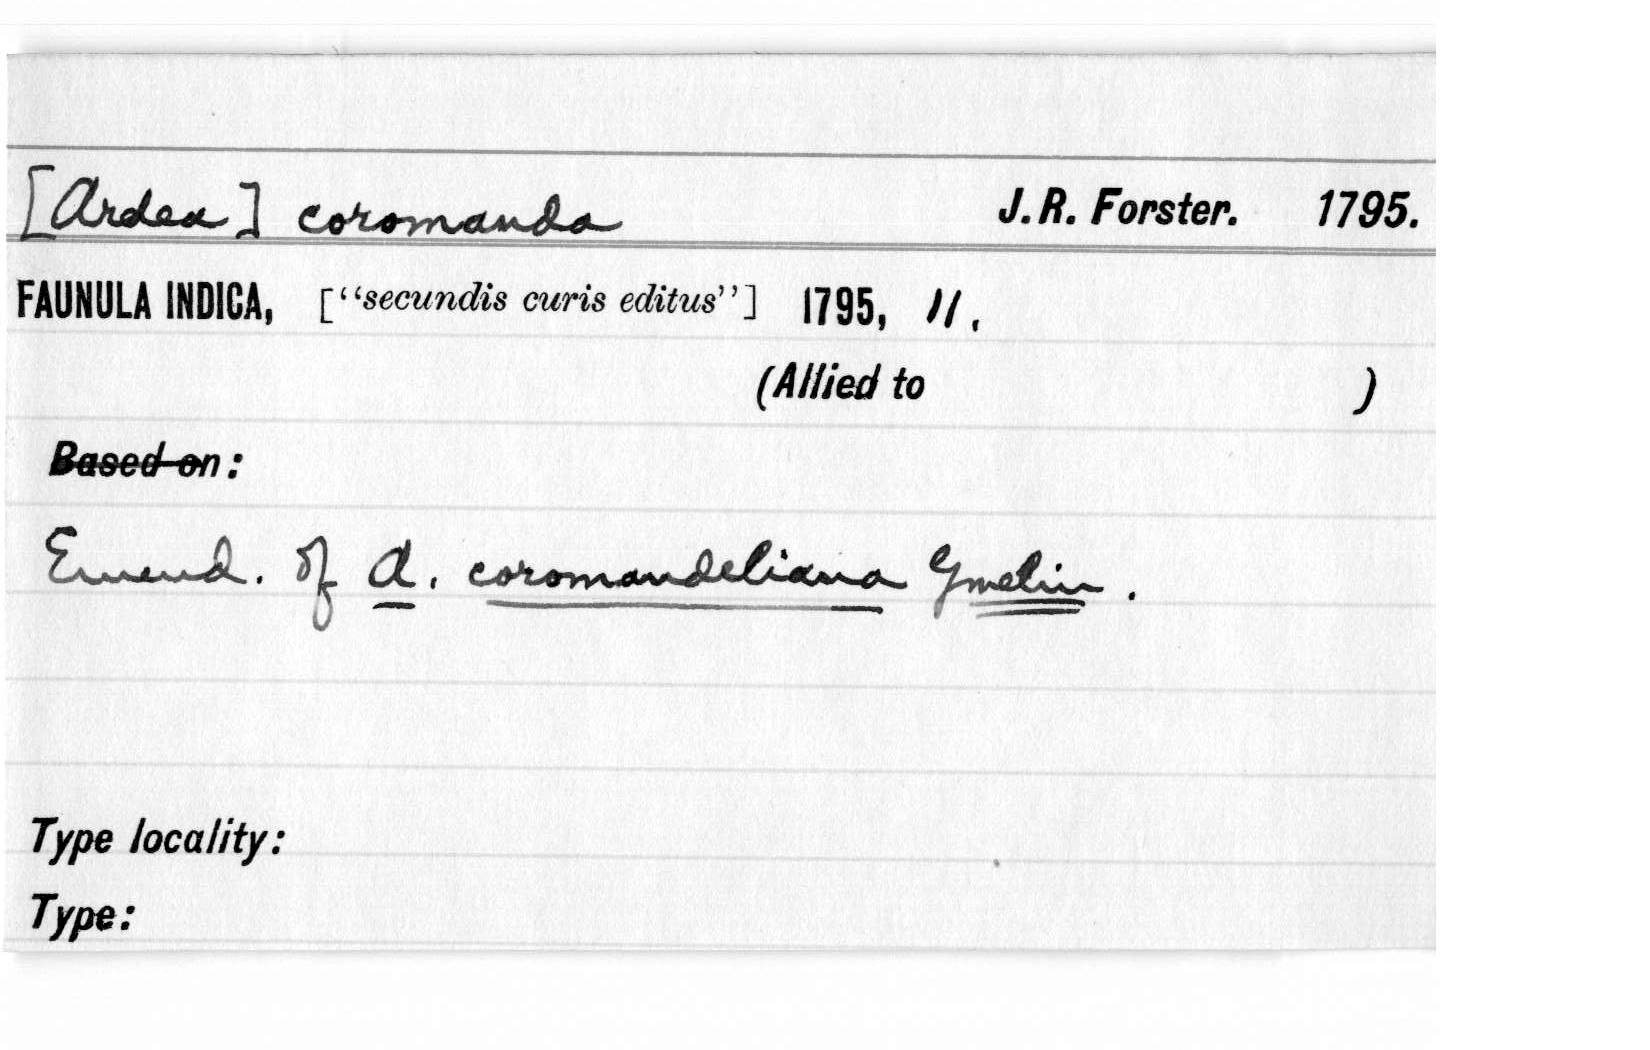 [Ardea] coromanda J. R. Forster. 1795.
FAUNULA INDICA, ["secundis curis editus"] 1795, 11.
(Allied to )
Based on:
Emend. of A. coromandeliana Gmelin.
Type locality:
Type: